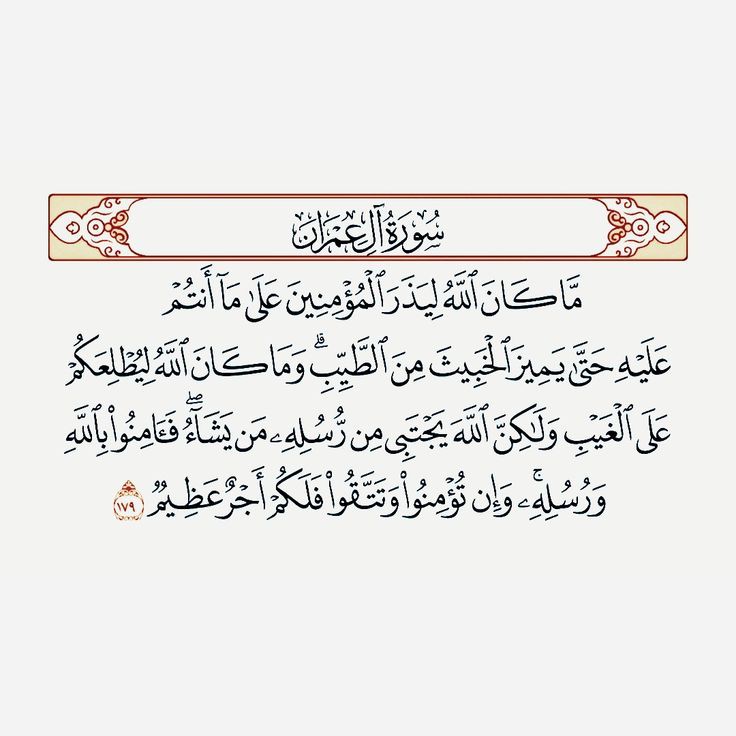 سُورَةُ آلِ عِمْرَانَ
مَّا كَانَ ٱللَّهُ لِيَذَرَ ٱلْمُؤْمِنِينَ عَلَىٰ مَآ أَنتُمْ
عَلَيْهِ حَتَّىٰ يَمِيزَ ٱلْخَبِيثَ مِنَ ٱلطَّيِّبِ ۗ وَمَا كَانَ ٱللَّهُ لِيُطْلِعَكُمْ
عَلَى ٱلْغَيْبِ وَلَٰكِنَّ ٱللَّهَ يَجْتَبِى مِن رُّسُلِهِۦ مَن يَشَآءُ ۖ فَـَٔامِنُوا۟ بِٱللَّهِ
وَرُسُلِهِۦ ۚ وَإِن تُؤْمِنُوا۟ وَتَتَّقُوا۟ فَلَكُمْ أَجْرٌ عَظِيمٌ ١٧٩